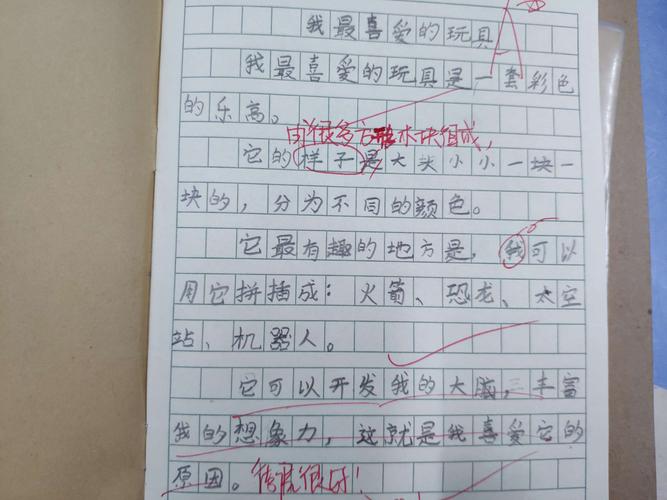 我最喜爱的玩具
我最喜爱的玩具是一套彩色
的乐高。
由很多方形木块组成,
它的样子是大大小小一块一
块的，分为不同的颜色。
它最有趣的地方是，我可以
用它拼插成：火箭、恐龙、太空
站、机器人。
它可以开发我的大脑，丰富
我的想象力，这就是我喜爱它的
原因。
很好！